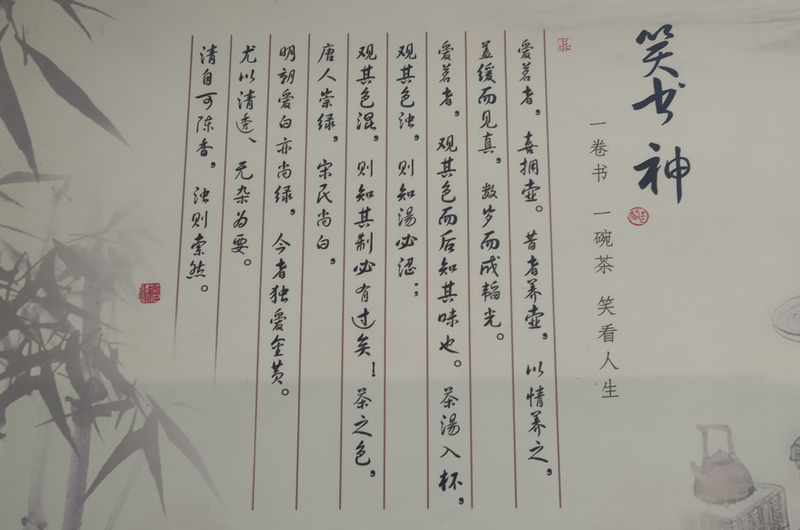 笑书神
一卷书 一碗茶 笑看人生
爱茗者，喜拥壶。昔者养壶，以情养之，
盖缓而见真，数岁而成韬光。
爱茗者，观其色而后知其味也。茶湯入杯，
观其色浊，则知湯必涩；
观其色混，则知其制必有过矣！茶之色，
唐人崇绿，宋民尚白，
明朝爱白亦尚绿，今者独爱金黄。
尤以清透、无杂为要。
清自可陈香，浊则索然。